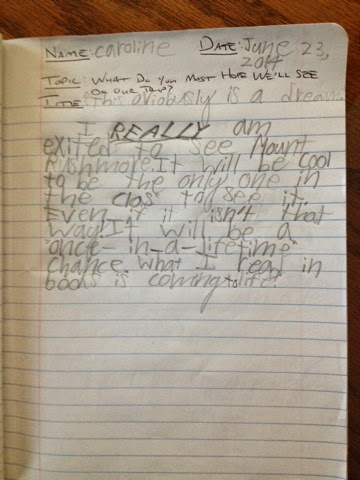 NAME: caroline DATE: June 23, 2014
TOPIC: WHAT DO YOU MOST HOPE WE'LL SEE
ON OUR TRIP?
TITLE: This oviobusly is a dream
I REALLY am
exited to see Mount
Rushmore. It will be cool
to be the only one in
the clas to see it.
Even if it isn't that
way. It will be a
"once-in-a-lifetime"
chance. What I read in
books is coming to life!